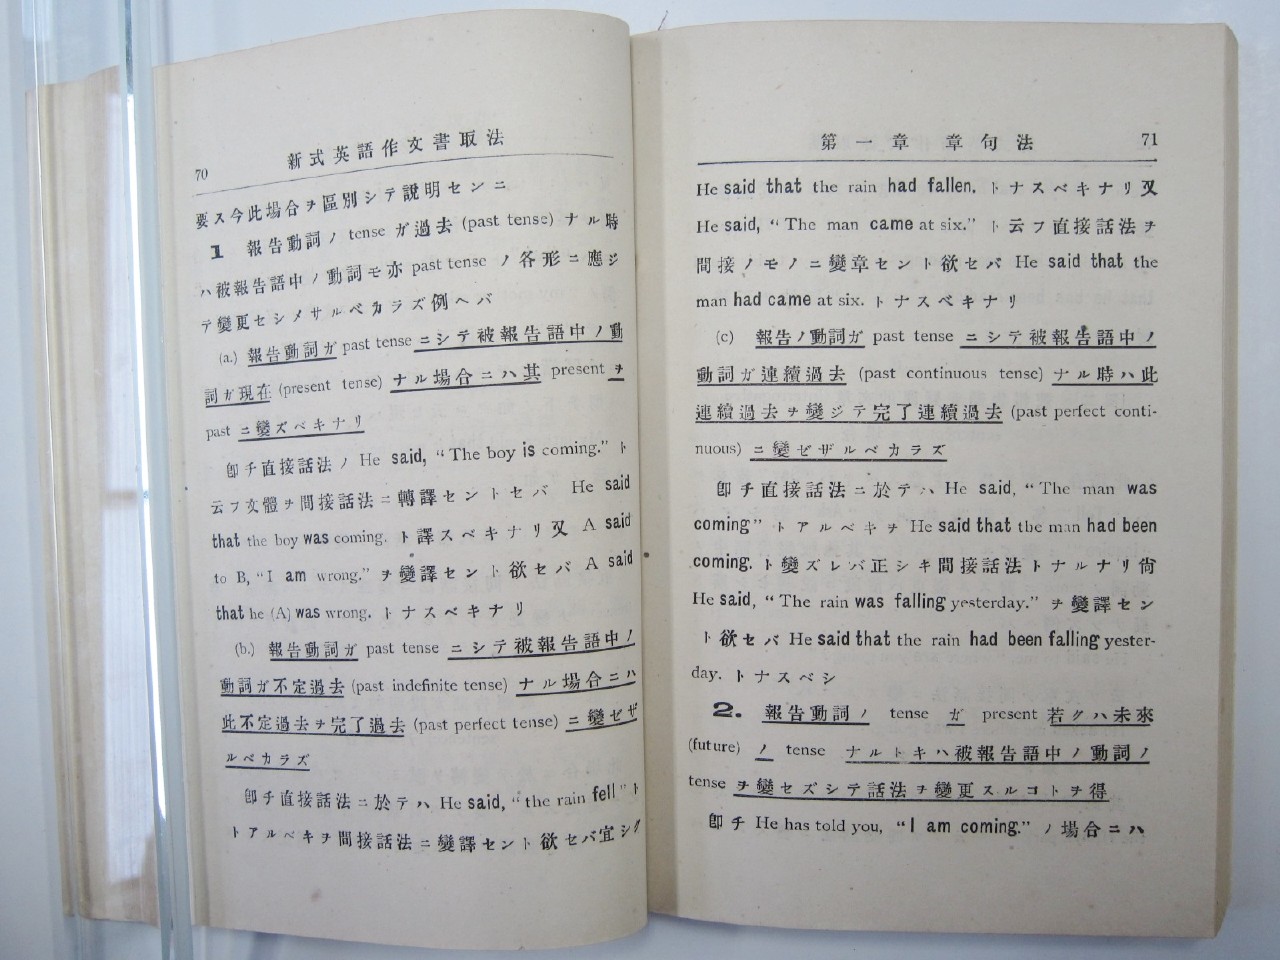 70 新式英語作文書取法
要ス今此場合ヲ區別シテ説明センニ
1 報告動詞ノ tense ガ過去 (past tense) ナル時
ハ被報告語中ノ動詞モ亦 past tense ノ各形ニ應ジ
テ變更セシメサルベカラズ例ヘバ
(a.) 報告動詞ガ past tense ニシテ被報告語中ノ動
詞ガ現在 (present tense) ナル場合ニハ其 present ヲ
past ニ變ズベキナリ
卽チ直接話法ノ He said, “The boy is coming.” ト
云フ文體ヲ間接話法ニ轉譯セントセバ He said
that the boy was coming. ト譯スベキナリ又 A said
to B, “I am wrong.” ヲ變譯セント欲セバ A said
that he (A) was wrong. トナスベキナリ
(b.) 報告動詞ガ past tense ニシテ被報告語中ノ
動詞ガ不定過去 (past indefinite tense) ナル場合ニハ
此不定過去ヲ完了過去 (past perfect tense) ニ變ゼザ
ルベカラズ
卽チ直接話法ニ於テハ He said, “the rain fell” ト
トアルベキヲ間接話法ニ變譯セント欲セバ宜シク
第一章 章句法 71
He said that the rain had fallen. トナスベキナリ又
He said, “The man came at six.” ト云フ直接話法ヲ
間接ノモノニ變章セント欲セバ He said that the
man had came at six. トナスベキナリ
(c) 報告ノ動詞ガ past tense ニシテ被報告語中ノ
動詞ガ連續過去 (past continuous tense) ナル時ハ此
連續過去ヲ變ジテ完了連續過去 (past perfect conti-
nuous) ニ變ゼザルベカラズ
卽チ直接話法ニ於テハ He said, “The man was
coming” トアルベキヲ He said that the man had been
coming. ト變ズレバ正シキ間接話法トナルナリ尙
He said, “The rain was falling yesterday.” ヲ變譯セン
ト欲セバ He said that the rain had been falling yester-
day. トナスベシ
2. 報告動詞ノ tense ガ present 若クハ未來
(future) ノ tense ナルトキハ被報告語中ノ動詞ノ
tense ヲ變セズシテ話法ヲ變更スルコトヲ得
卽チ He has told you, “I am coming.” ノ場合ニハ